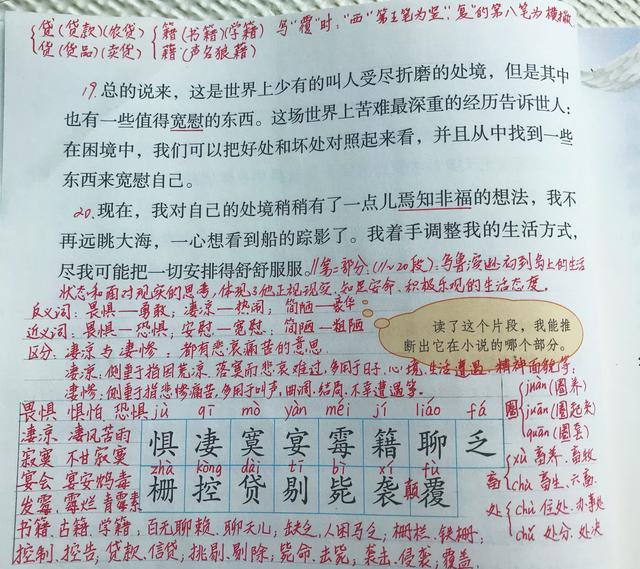 贷(贷款)(农贷) 籍(书籍)(学籍) 写"覆"时,"西"第五笔为竖,"复"的第八笔为横撇
货(货品)(卖货) 藉(声名狼藉)
19.总的说来,这是世界上少有的叫人受尽折磨的处境,但是其中
也有一些值得宽慰的东西。这场世界上苦难最深重的经历告诉世人:
在困境中,我们可以把好处和坏处对照起来看,并且从中找到一些
东西来宽慰自己。
20.现在,我对自己的处境稍稍有了一点儿焉知非福的想法,我不
再远眺大海,一心想看到船的踪影了。我着手调整我的生活方式,
尽我可能把一切安排得舒舒服服。//第二部分:(11~20段):写鲁滨逊初到岛上的生活
状态和面对现实的思考,体现了他正视现实、知足安命、积极乐观的生活态度。
反义词:畏惧——勇敢;凄凉——热闹;简陋——豪华
近义词:畏惧——恐惧;安慰——宽慰;简陋——粗陋
读了这个片段,我能推
断出它在小说的哪个部分。
区分:凄凉与凄惨:都有悲哀痛苦的意思.
凄凉:侧重于指因荒凉、落寞而悲哀难过,多用于日子、心境、生活遭遇、精神面貌等;
凄惨:侧重于指悲惨痛苦,多用于叫声、曲调、结局、不幸遭遇等。
畏惧 惧怕 恐惧 jù qī mò yàn méi jí liáo fá
凄凉 凄风苦雨 惧 凄 寞 宴 霉 籍 聊 乏
寂寞 不甘寂寞
宴会 宴安鸩毒 zhà kòng dài tī bì xí fù
发霉、霉烂 青霉素 栅 控 贷 剔 毙 袭 颠覆
圈 juàn(圈养)
juān(圈起来)
quān(圈套)
畜 xù 畜养、畜牧
chù 畜生、六畜
处 chù 住处、办事处
chǔ 处分、处决
书籍、古籍、学籍,百无聊赖、聊天儿;缺乏、人困马乏;栅栏、铁栅;
控制、控告,贷款、信贷;挑剔、剔除;毙命、击毙;袭击、侵袭;覆盖、